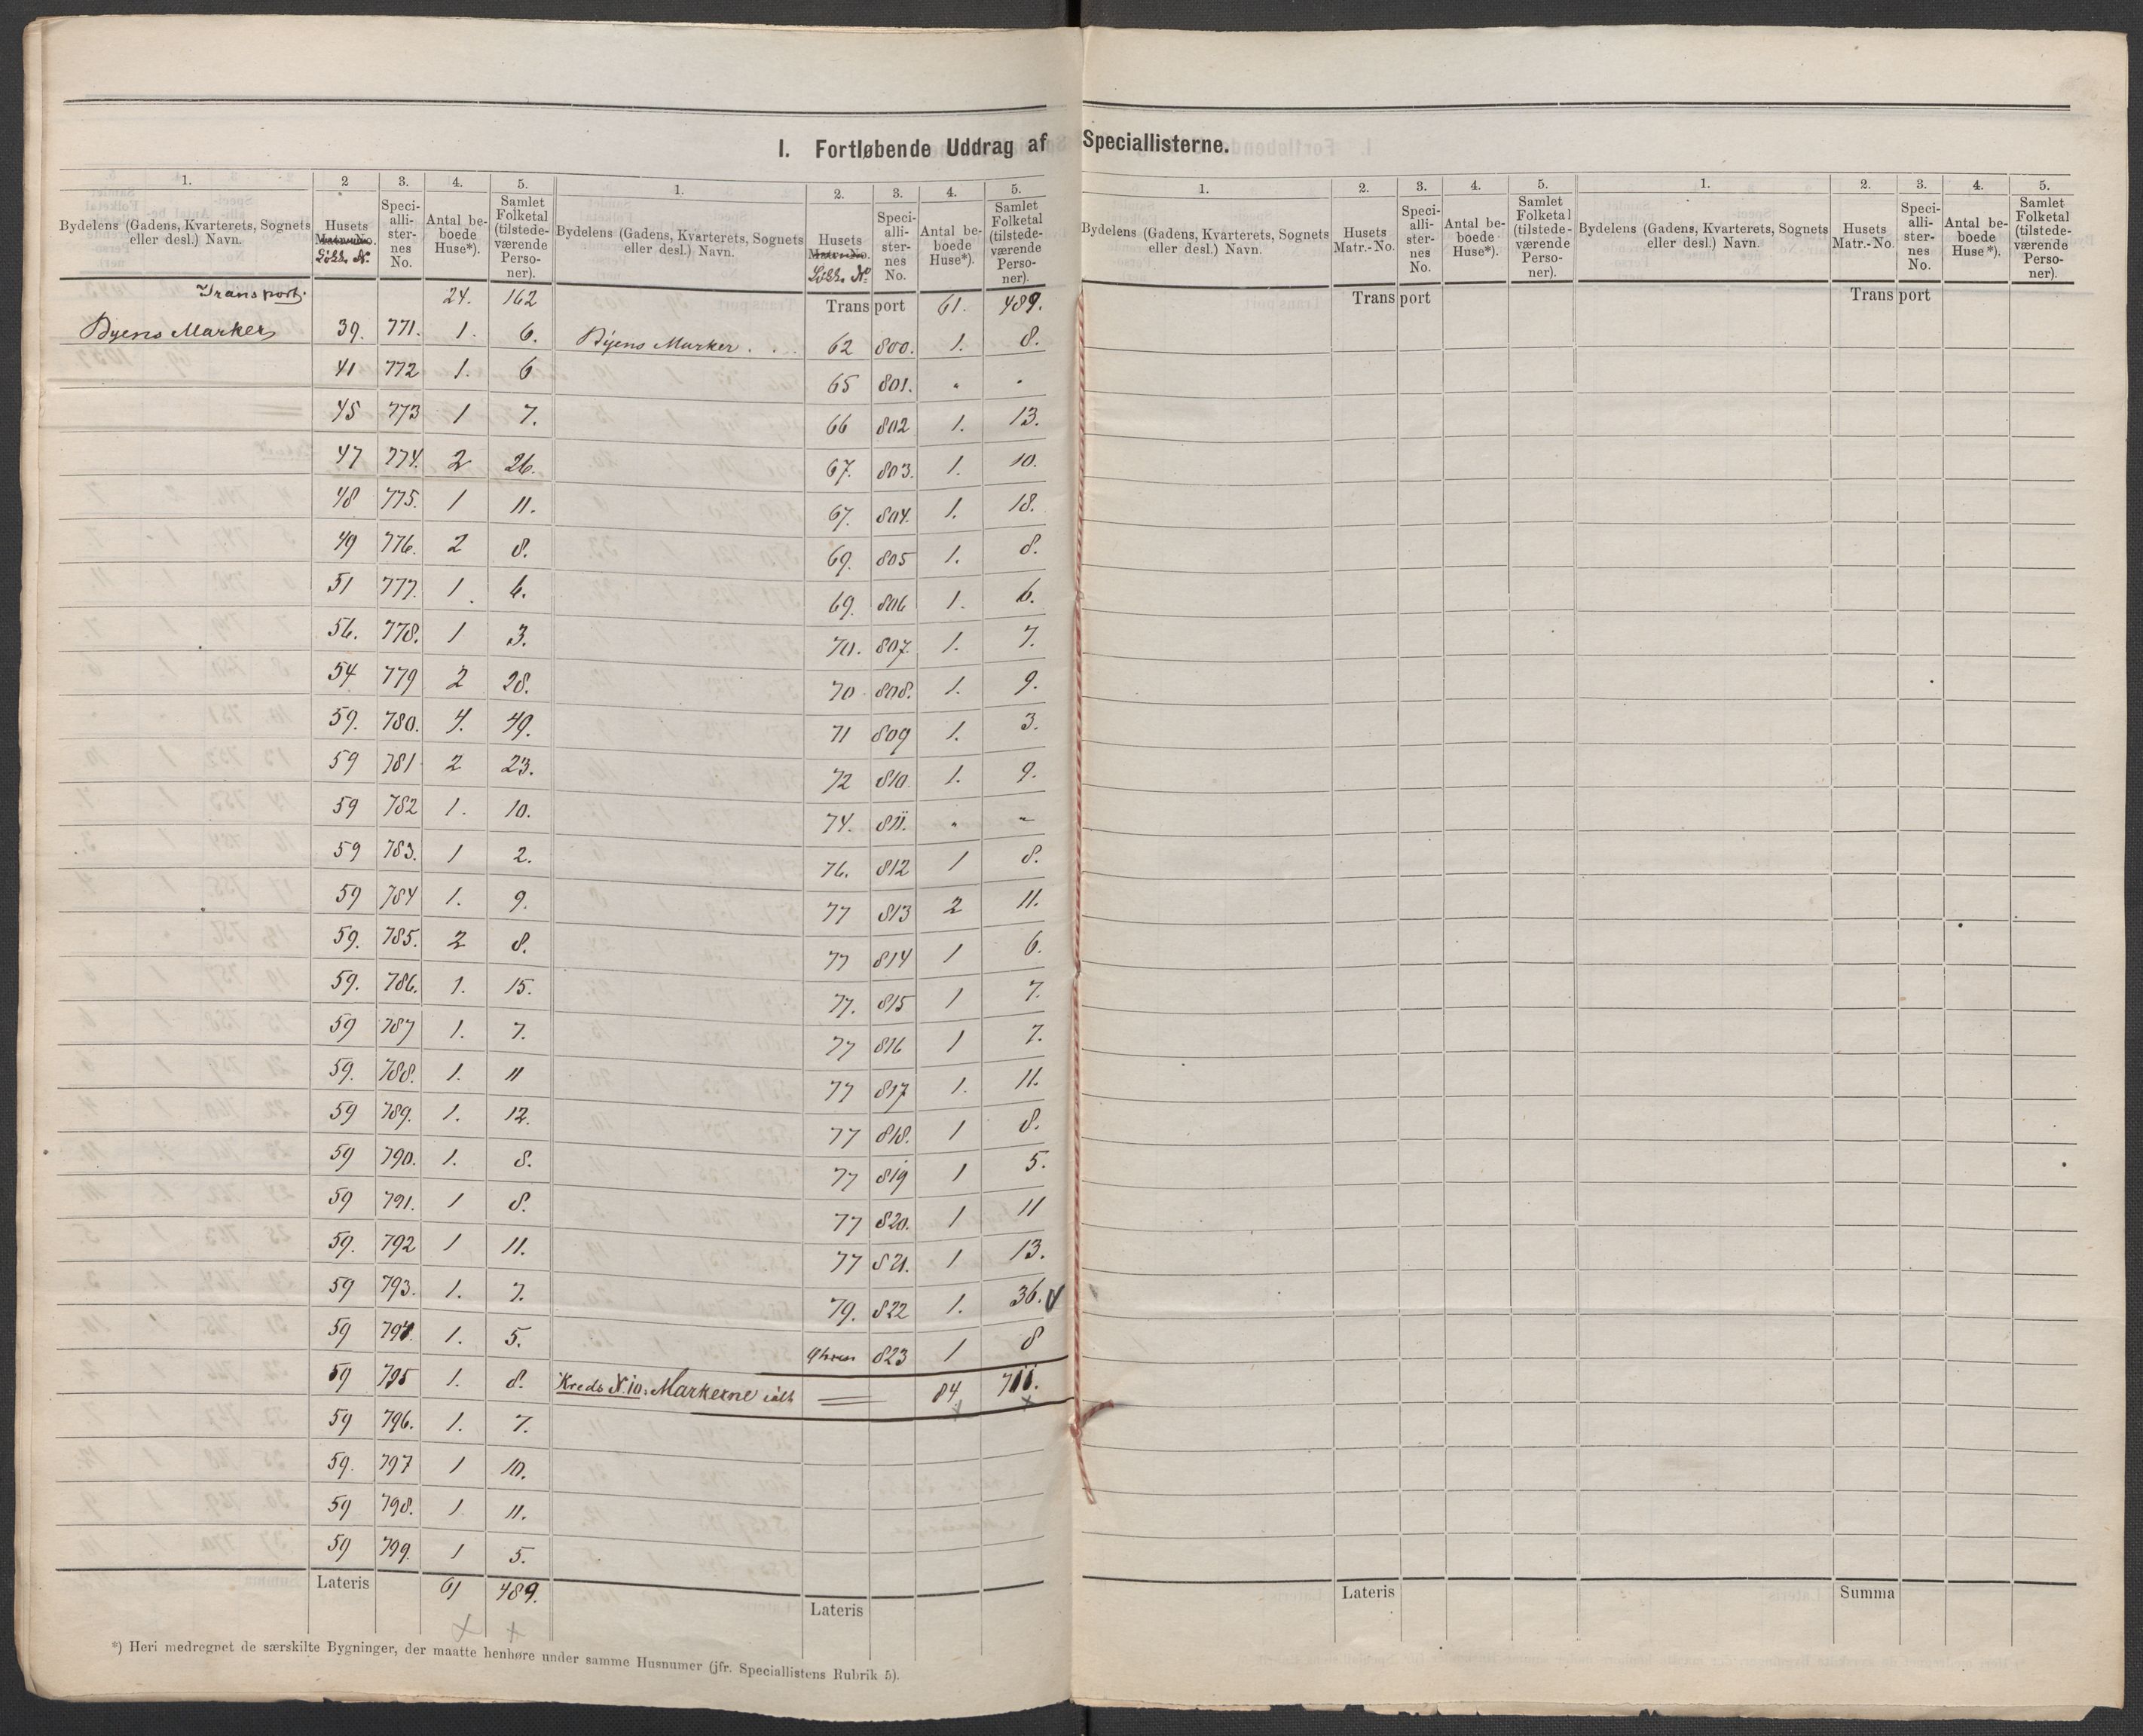 I. Fortløbende Uddrag af Speciallisterne.
1. 2 3. 4. 5. 1. 2. 3. 4. 5. 1. 2. 3. 4. 5. 1. 2. 3. 4. 5.
Bydelens (Gadens, Kvarterets, Sognets eller desl.) Navn. Husets Løbe No. Speciallisternes No. Antal beboede Huse*). Samlet Folketal (tilstedeværende Personer).
Bydelens (Gadens, Kvarterets, Sognets eller desl.) Navn. Husets Løbe No. Speciallisternes No. Antal beboede Huse*). Samlet Folketal (tilstedeværende Personer).
Bydelens (Gadens, Kvarterets, Sognets eller desl.) Navn. Husets Matr.-No. Speciallisternes No. Antal beboede Huse*). Samlet Folketal (tilstedeværende Personer).
Bydelens (Gadens, Kvarterets, Sognets eller desl.) Navn. Husets Matr.-No. Speciallisternes No. Antal beboede Huse*). Samlet Folketal (tilstedeværende Personer).
Transport. 24. 162
Byens Marker 39. 771. 1. 6.
41 772 1. 6
45 773 1 7.
47 774. 2 26.
48 775. 1 11.
49 776. 2 8.
51 777. 1. 6.
56. 778. 1 3.
54 779 2 28.
59. 780. 4. 49.
59 781 2 23.
59 782 1. 10.
59 783. 1 2.
59 784 1. 9.
59. 785. 2 8.
59. 786. 1. 15.
59 787 1. 7.
59. 788. 1. 11
59 789. 1. 12.
59 790. 1. 8.
59 791. 1 8.
59. 792 1 11.
59 793. 1. 7.
59 794. 1. 5.
59 795 1. 8.
59 796. 1. 7.
59. 797 1 10.
59 798. 1 11.
59 799. 1 5.
Lateris 61 489.
Transport 61. 489.
Byens Marker . . . 62 800. 1. 8.
65 801. " "
66 802 1. 13.
67. 803. 1. 10.
67. 804. 1. 18.
69. 805 1. 8.
69. 806 1. 6.
70. 807. 1. 7.
70 808. 1. 9.
71 809 1. 3.
72 810. 1. 9.
74. 811. " "
76. 812 1 8.
77 813 2 11.
77 814 1 6.
77. 815 1 7.
77 816 1 7.
77 817 1. 11.
77 818. 1 8.
77 819 1 5.
77 820. 1 11
77 821. 1 13.
79. 822 1. 36.
823 1 8
Kreds N. 10. Markerne ialt 84. 711.
Lateris
Transport
Lateris
Transport
Summa
*) Heri medregnet de særskilte Bygninger, der maatte henhøre under samme Husnumer (jfr. Speciallistens Rubrik 5).